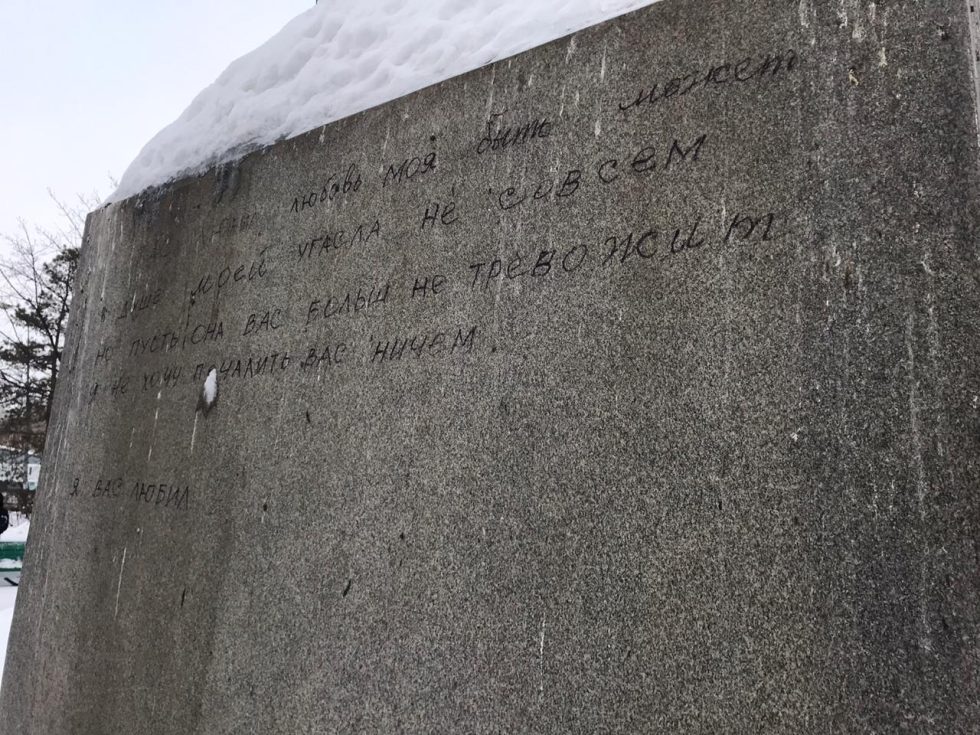 любовь моя быть может
душе моей угасла не совсем
но пусть она вас больш не тревожит
я не хочу печалить вас ничем.
я вас любил